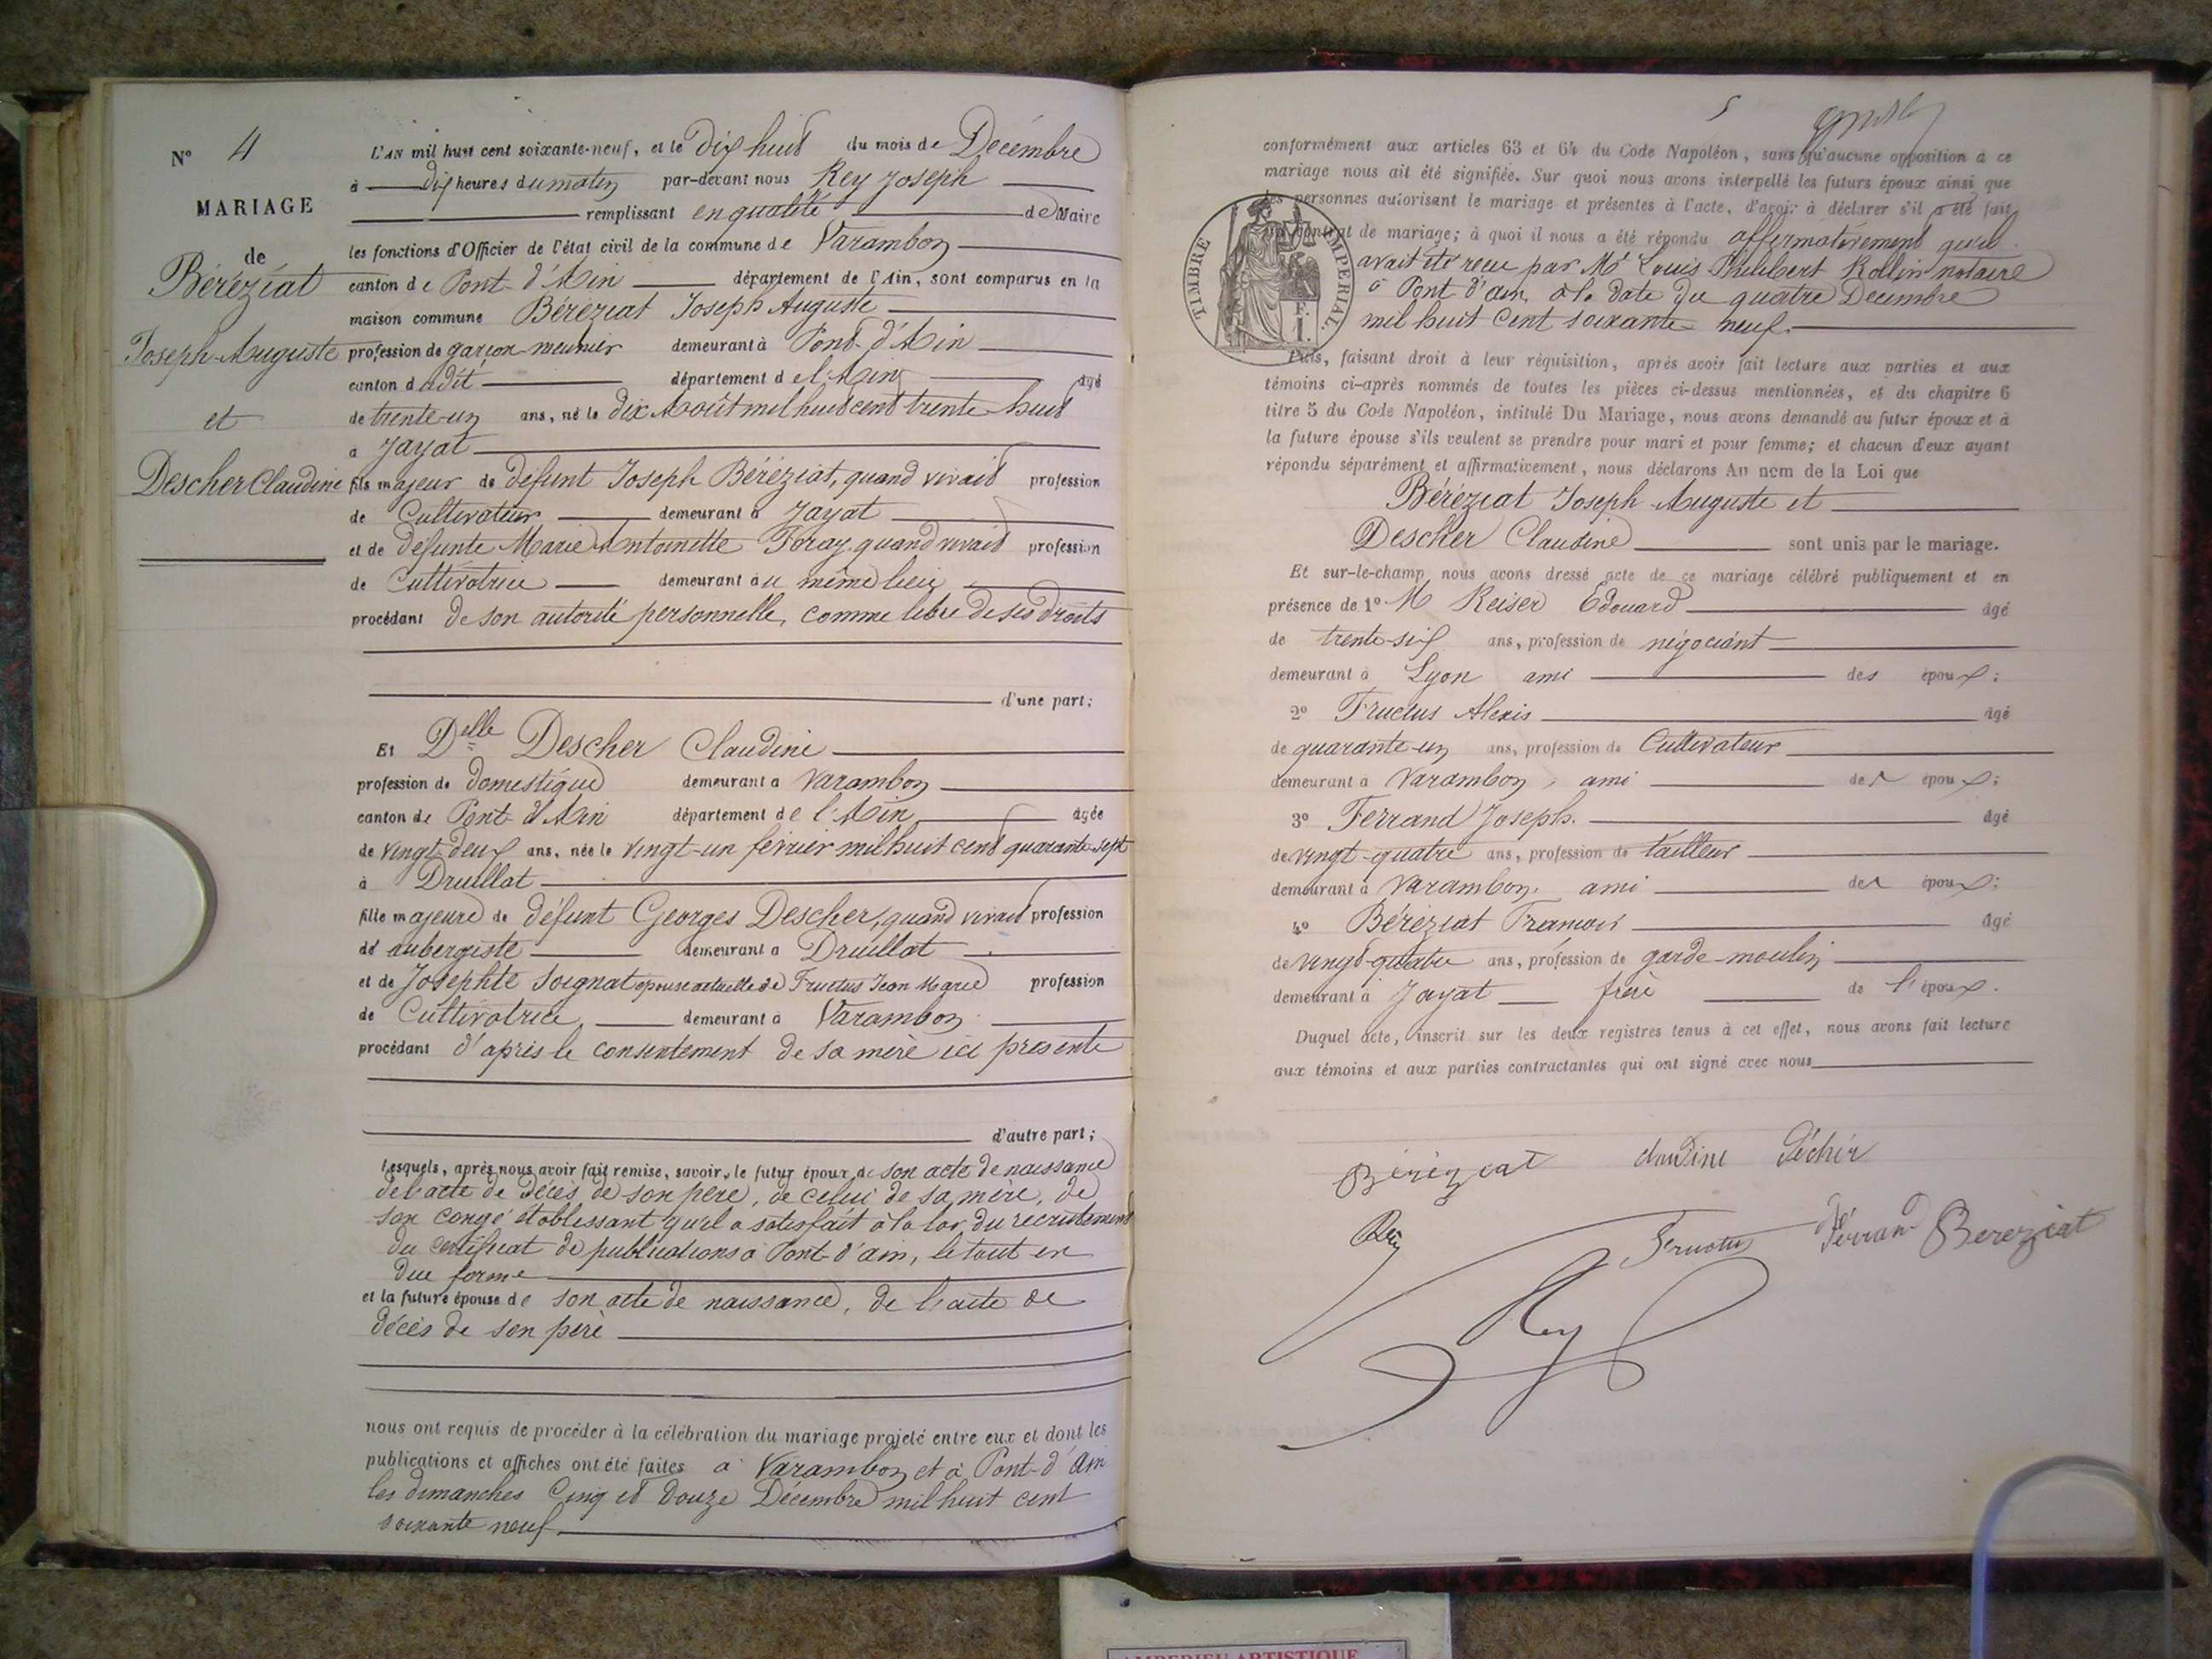 N° 4
MARIAGE
de
Béréziat
Joseph-Auguste
et
Descher Claudine
L'AN mil huit cent soixante-neuf, et le Dix huit du mois de Décembre
à dix heures du matin par-devant nous Rey Joseph
remplissant en qualité de Maire
les fonctions d'Officier de l'état civil de la commune de Varambon
canton de Pont-d'Ain département de l'Ain, sont comparus en la
maison commune Béréziat Joseph Auguste
profession de garçon meunier demeurant à Pont-d'Ain
canton du dit département de l'Ain âgé
de trente-un ans, né le dix Août mil huit cent trente-huit
à Jayat
fils majeur de défunt Joseph Béréziat, quand vivait profession
de Cultivateur demeurant à Jayat
et de défunte Marie Antoinette Foray quand vivait profession
de Cultivatrice demeurant au même lieu
procédant de son autorité personnelle, comme libre de ses droits
d'une part;
Et Delle Descher Claudine
profession de domestique demeurant à Varambon
canton de Pont d'Ain département de l'Ain âgée
de vingt-deux ans, née le vingt-un février mil huit cent quarante-sept
à Druillat
fille majeure de défunt Georges Descher, quand vivait profession
d' aubergiste demeurant à Druillat
et de Josephte Soignat épouse actuelle de Fructus Jean Marie profession
de Cultivatrice demeurant à Varambon
procédant d'après le consentement de sa mère ici présente
d'autre part;
Lesquels, après nous avoir fait remise, savoir, le futur époux de son acte de naissance
de l'acte de décès de son père, de celui de sa mère, de
son congé établissant qu'il a satisfait à la loi du recrutement
du certificat de publications à Pont-d'ain, le tout en
due forme
et la future épouse de son acte de naissance, de l'acte de
décès de son père
nous ont requis de procéder à la célébration du mariage projeté entre eux et dont les
publications et affiches ont été faites à Varambon et à Pont-d'Ain
les dimanches Cinq et Douze Décembre mil huit cent
soixante neuf
5
conformément aux articles 63 et 64 du Code Napoléon, sans qu'aucune opposition à ce
mariage nous ait été signifiée. Sur quoi nous avons interpellé les futurs époux ainsi que
les personnes autorisant le mariage et présentes à l'acte, d'avoir à déclarer s'il a été fait
contrat de mariage; à quoi il nous a été répondu affirmativement qu'il
avait été reçu par Me Louis Philibert Rollin notaire
à Pont d'ain, à la date du quatre Décembre
mil huit cent soixante neuf.
TIMBRE IMPERIAL.
F. I.
Puis, faisant droit à leur réquisition, après avoir fait lecture aux parties et aux
témoins ci-après nommés de toutes les pièces ci-dessus mentionnées, et du chapitre 6
titre 5 du Code Napoléon, intitulé Du Mariage, nous avons demandé au futur époux et à
la future épouse s'ils veulent se prendre pour mari et pour femme; et chacun d'eux ayant
répondu séparément et affirmativement, nous déclarons Au nom de la Loi que
Béréziat Joseph Auguste et
Descher Claudine sont unis par le mariage.
Et sur-le-champ nous avons dressé acte de ce mariage célébré publiquement et en
présence de 1° M Keiser Edouard âgé
de trente-six ans, profession de négociant
demeurant à Lyon ami des époux;
2° Fructus Alexis âgé
de quarante-un ans, profession de Cultivateur
demeurant à Varambon, ami des époux;
3° Ferrand Joseph. âgé
de vingt-quatre ans, profession de tailleur
demeurant à Varambon, ami des époux;
4° Béréziat François âgé
de vingt-quatre ans, profession de garde-moulin
demeurant à Jayat frère de l'époux.
Duquel acte, inscrit sur les deux registres tenus à cet effet, nous avons fait lecture
aux témoins et aux parties contractantes qui ont signé avec nous
Béréziat Claudine Déchér
Fructus Ferrand Bereziat
Rey
AMBERIEU ARTISTIQUE